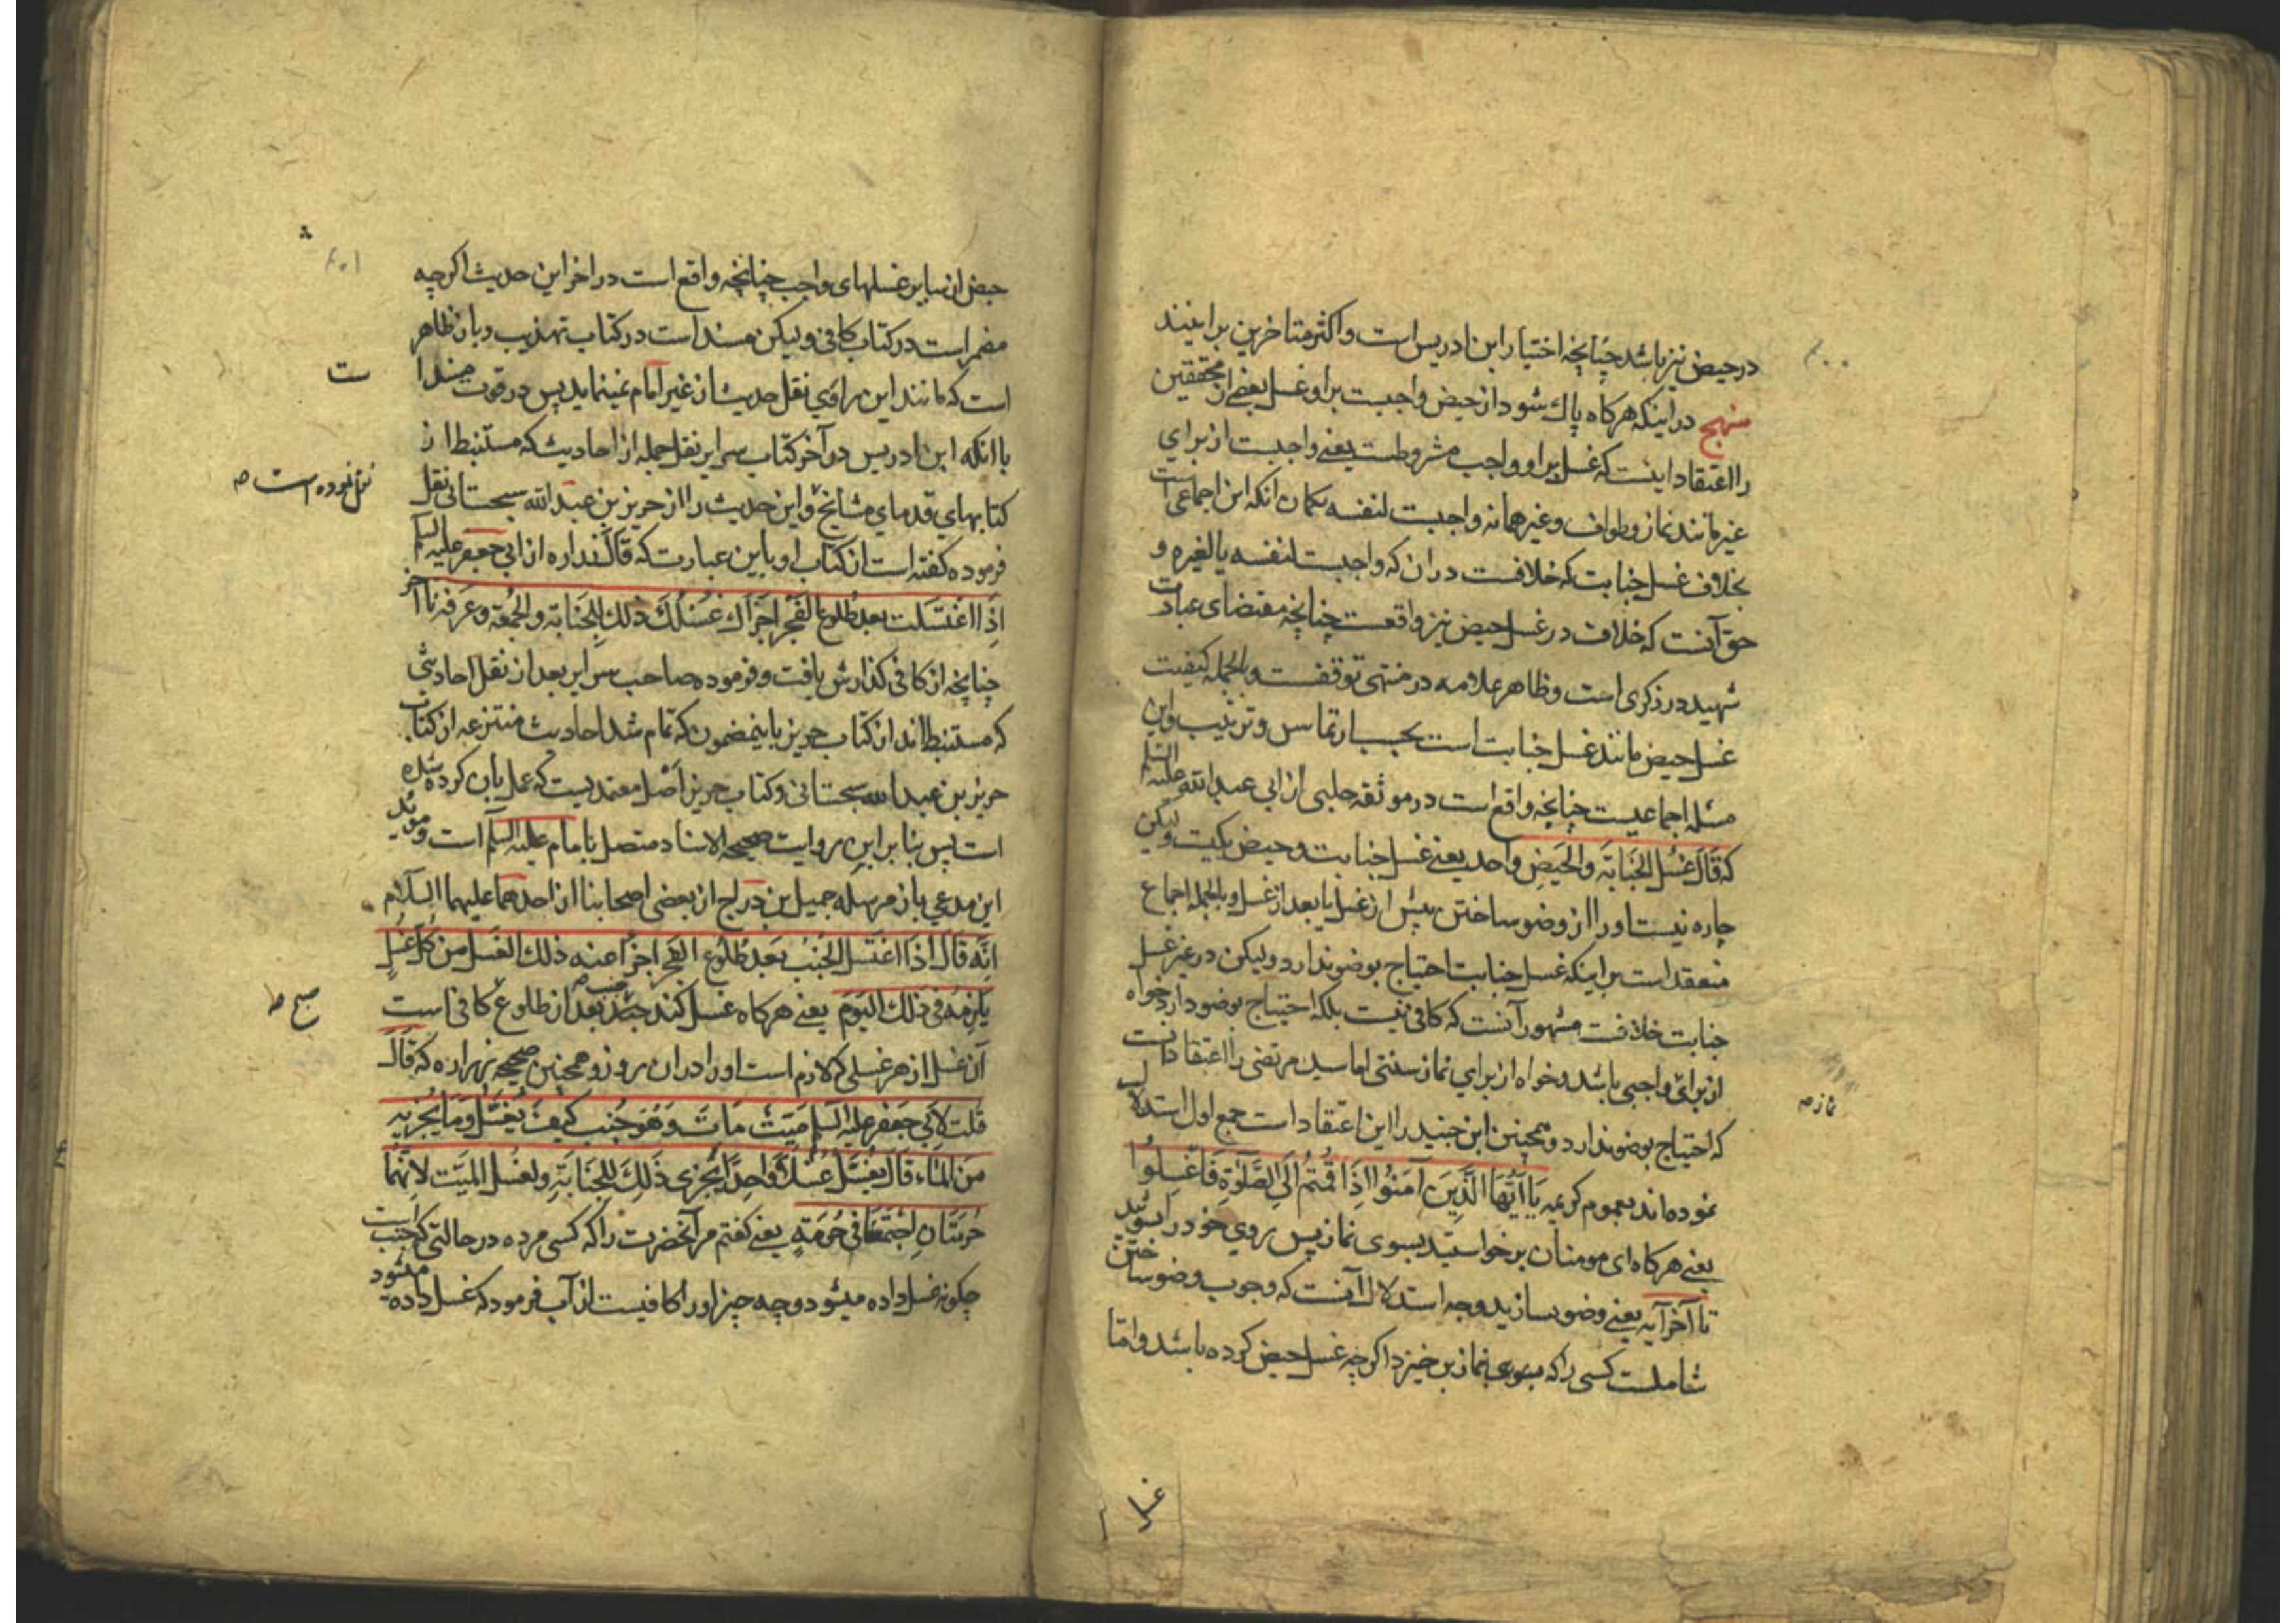 در حیض نیز باشد چنانچه اختیار ابن ادریس است و اکثر متاخرین براینند
منهج در اینکه هرکاه پاك شود از حیض واجبست براو غسل بعضی از محققین
را اعتقاد اینست که غسل براو واجب مشروطست یعنی واجبست از برای
غیر مانند نماز و طواف و غیرهما نه واجبست لنفسه بکمان انکه این اجماعی است
بخلاف غسل جنابت که خلافست دران که واجبست لنفسه یا لغیره و
حق آنست که خلاف در غسل حیض نیز واقعست چنانچه مقتضای عبارت
شهید در ذکری است و ظاهر علامه در منتهی توقفست و بالجمله کیفیت
غسل حیض مانند غسل جنابت است بحسب ارتماس و ترتیب و این
مسئله اجماعیست چنانچه واقع است در موثقه حلبی از ابی عبد الله علیه السلم
که قَالَ غُسْل الجَنَابَة وَالحَیضِ وَاحد یعنی غسل جنابت و حیض یکیست ولیکن
چاره نیست اورا از وضو ساختن پیش از غسل یا بعد از غسل و بالجمله اجماع
منعقد است براینکه غسل جنابت احتیاج بوضو ندارد ولیکن در غیر غسل
جنابت خلافست مشهور آنست که کافی نیست بلکه احتیاج بوضو دارد خواه
از برای واجبی باشد و خواه از برای نماز سنتی اما سید مرتضی را اعتقاد انست
که احتیاج بوضو ندارد و همچنین ابن جنید را این اعتقاد است جمع اول استدلال
نموده اند بعموم کریمه یَا اَیُّهَا الَّذِینَ آمَنُوا اِذَا قُمْتُم اِلَی الصَّلٰوةِ فَاغْسِلُوا
یعنی هرکاه ای مومنان برخواستید بسوی نماز پس روی خود را بشوئید
تا آخر آیه یعنی وضو بسازید وجه استدلال آنست که وجوب وضو ساختن
شاملست کسی را که بسوی نماز برخیزد اکرچه غسل حیض کرده باشد و اما
نماز صه
حیض از سایر غسلهای واجب چنانچه واقع است در اخر این حدیث اکرچه
مضمر است در کتاب کافی ولیکن مسند است در کتاب تهذیب و بان ظاهر
است که مانند این راوی نقل حدیث از غیر امام نمینماید پس در قوت مسند
با انکه ابن ادریس در آخر کتاب سرایر نقل جمله از احادیث که مستنبط از
کتابهای قدمای مشایخ و این حدیث را از حریز بن عبد الله سجستانی نقل
فرموده کفته است از کتاب او باین عبارت که قَالَ زراره از ابی جعفر علیه السلم
اِذَا اغْتَسَلت بعد طُلوع الفَجْر اَجزَأك غسْلُكَ ذلك لِلجَنَابَة والجُمعَة وعَرَفة تا آخر
چنانچه از کافی کذارش یافت و فرموده صاحب سرایر بعد از نقل احادیثی
که مستنبط اند از کتاب حریز باینمضمون که تمام شد احادیث منتزعه از کتاب
حریز بن عبد الله سجستانی و کتاب حریز اَصْل معتمدیست که عمل بان کرده شده
است پس بنا براین روایت صحیحه الاسناد متصل بامام علیه السلم است و موید
این مدعی باز مرسله جمیل بن دراج از بعضی اصحابنا از احدهما علیهما السلام
اِنَّه قَالَ اِذَا اغتَسَل الجُنُب بَعد طُلُوع الفَجر اجزأ عنه ذلك الغسل من کُلّ غُسلٍ
یَلزمهُ فی ذلك الیَوم یعنی هرکاه غسل کند جنب بعد از طلوع کافی است
آن غسل از هر غسلی که لازم است اورا دران روز و همچنین صحیحه زراره که قَالَ
قلت لاَبی جعفر علیه السلم مَیّت مَاتَ وَهُوَ جُنب کیفَ یُغَسَّل وَمَا یُجْزیه
مِنَ المَاء قال یُغَسَّل غُسْلاً وَاحِدًا یُجْزی ذَلِكَ لِلجَنَابَةِ ولغسل المَیّت لاَنَّهُمَا
حُرمَتَانِ اِجْتَمَعَا فی حُرمَةٍ یعنی کفتم مر آنحضرت را که کسی مرده در حالتی که جنب است
چکونه غسل داده میشود و چه چیز اورا کافیست از آب فرمود که غسل داده میشود
ست
نقل نموده است صه
صبح صه